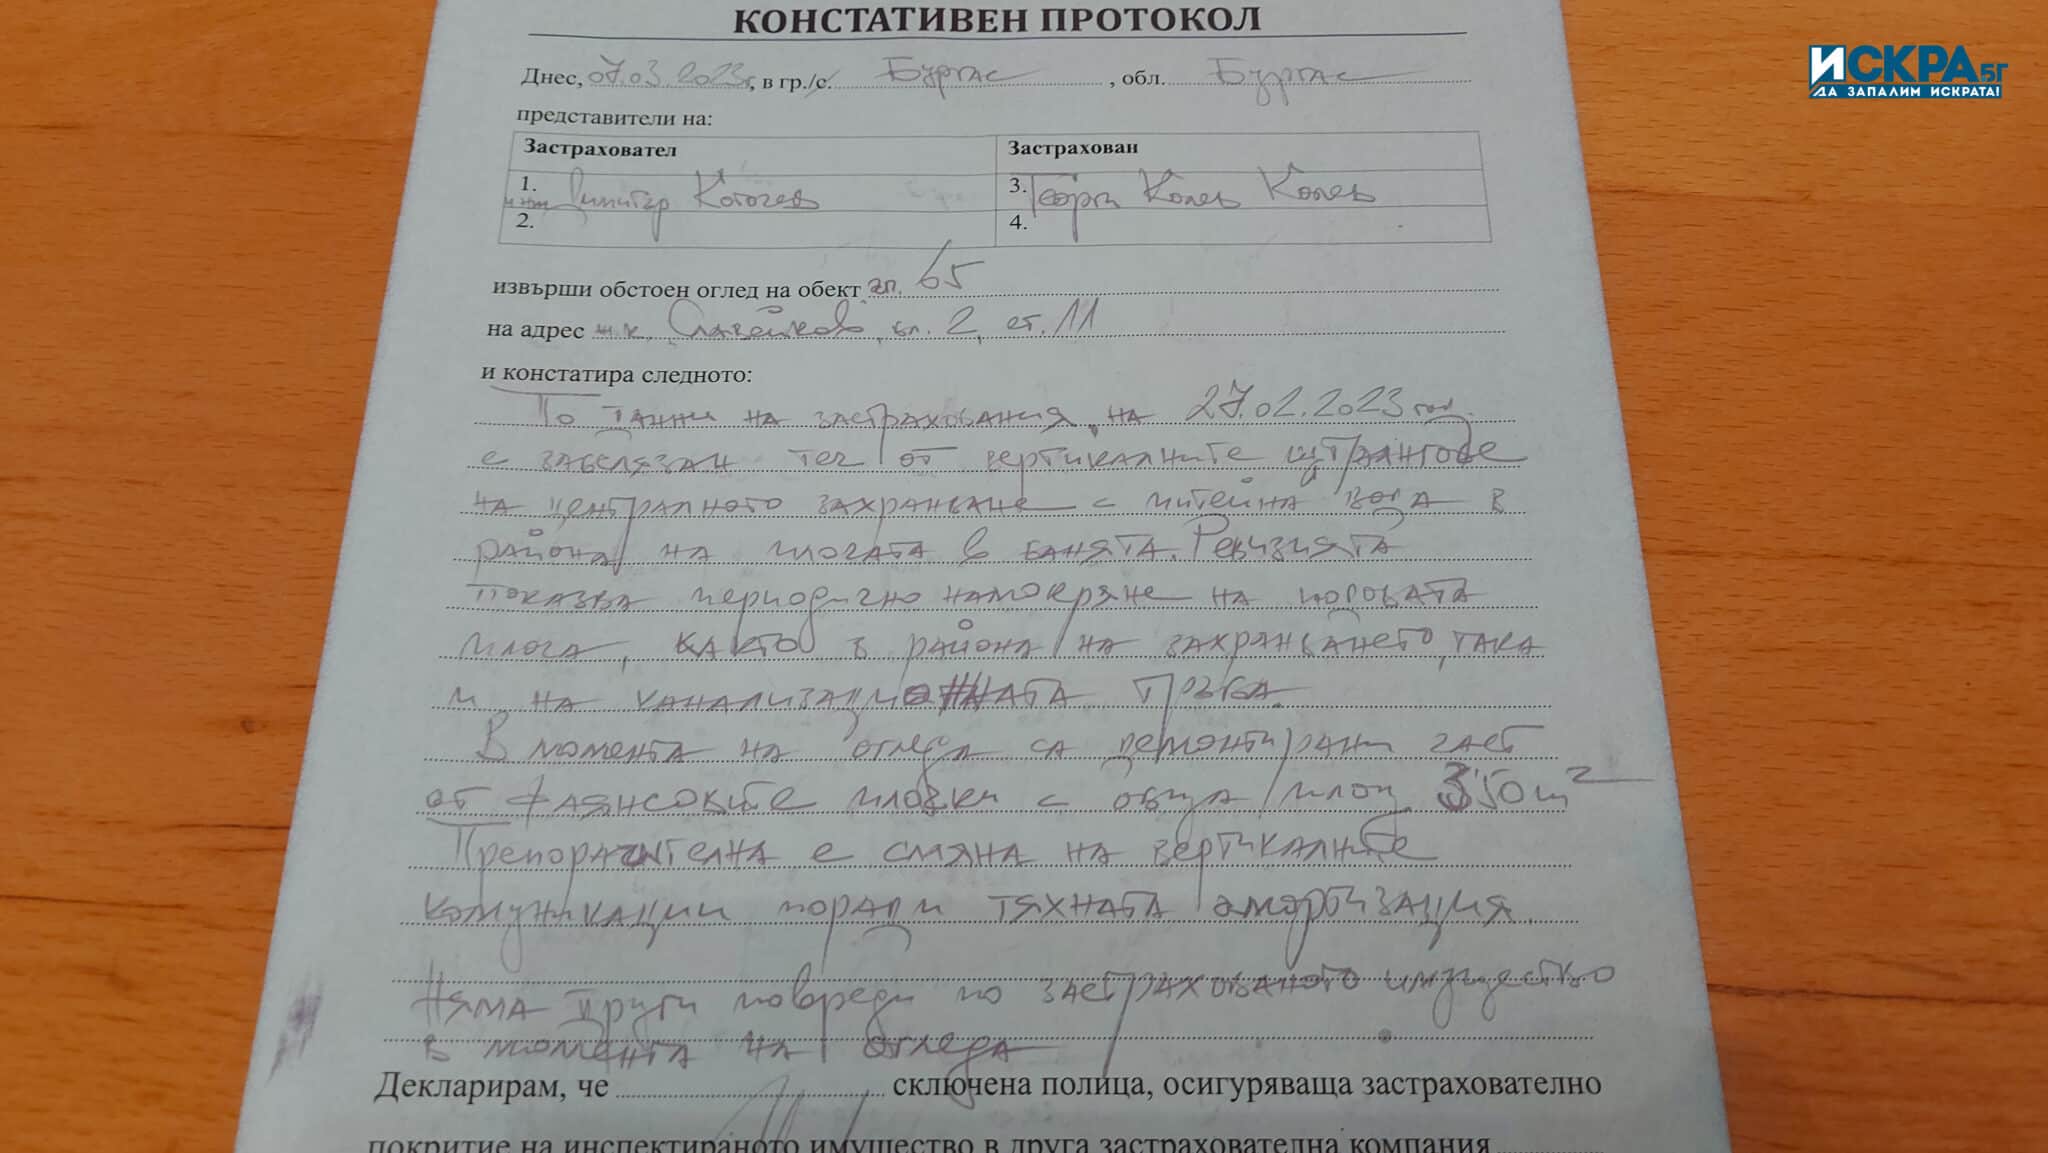 КОНСТАТИВЕН ПРОТОКОЛ
ИСКРА.БГ
ДА ЗАПАЛИМ ИСКРАТА!
Днес, 07.03.2023г, в гр./с. Бургас, обл. Бургас
представители на:
Застраховател Застрахован
1. инж. Димитър 3. Георги Колев Колев
2. 4.
извърши обстоен оглед на обект ап. 65
на адрес ж.к. Славейков, бл. 2, ет. 11
и констатира следното:
По данни на застрахования, на 27.02.2023 год.
е забелязан теч от вертикалните щтрангове
на централното захранване с питейна вода в
района на плочата в банята. Ревизията
показва периодично намокряне на подовата
плоча, както в района на захранването, така
и на канализационната тръба.
В момента на огледа са демонтирани част
от фаянсовите плочки с обща площ
Препоръчителна е смяна на вертикалните
комуникации поради тяхната амортизация.
Няма други повреди по застрахованото имущество
в момента на огледа
Декларирам, че сключена полица, осигуряваща застрахователно
покритие на инспектираното имущество в друга застрахователна компания